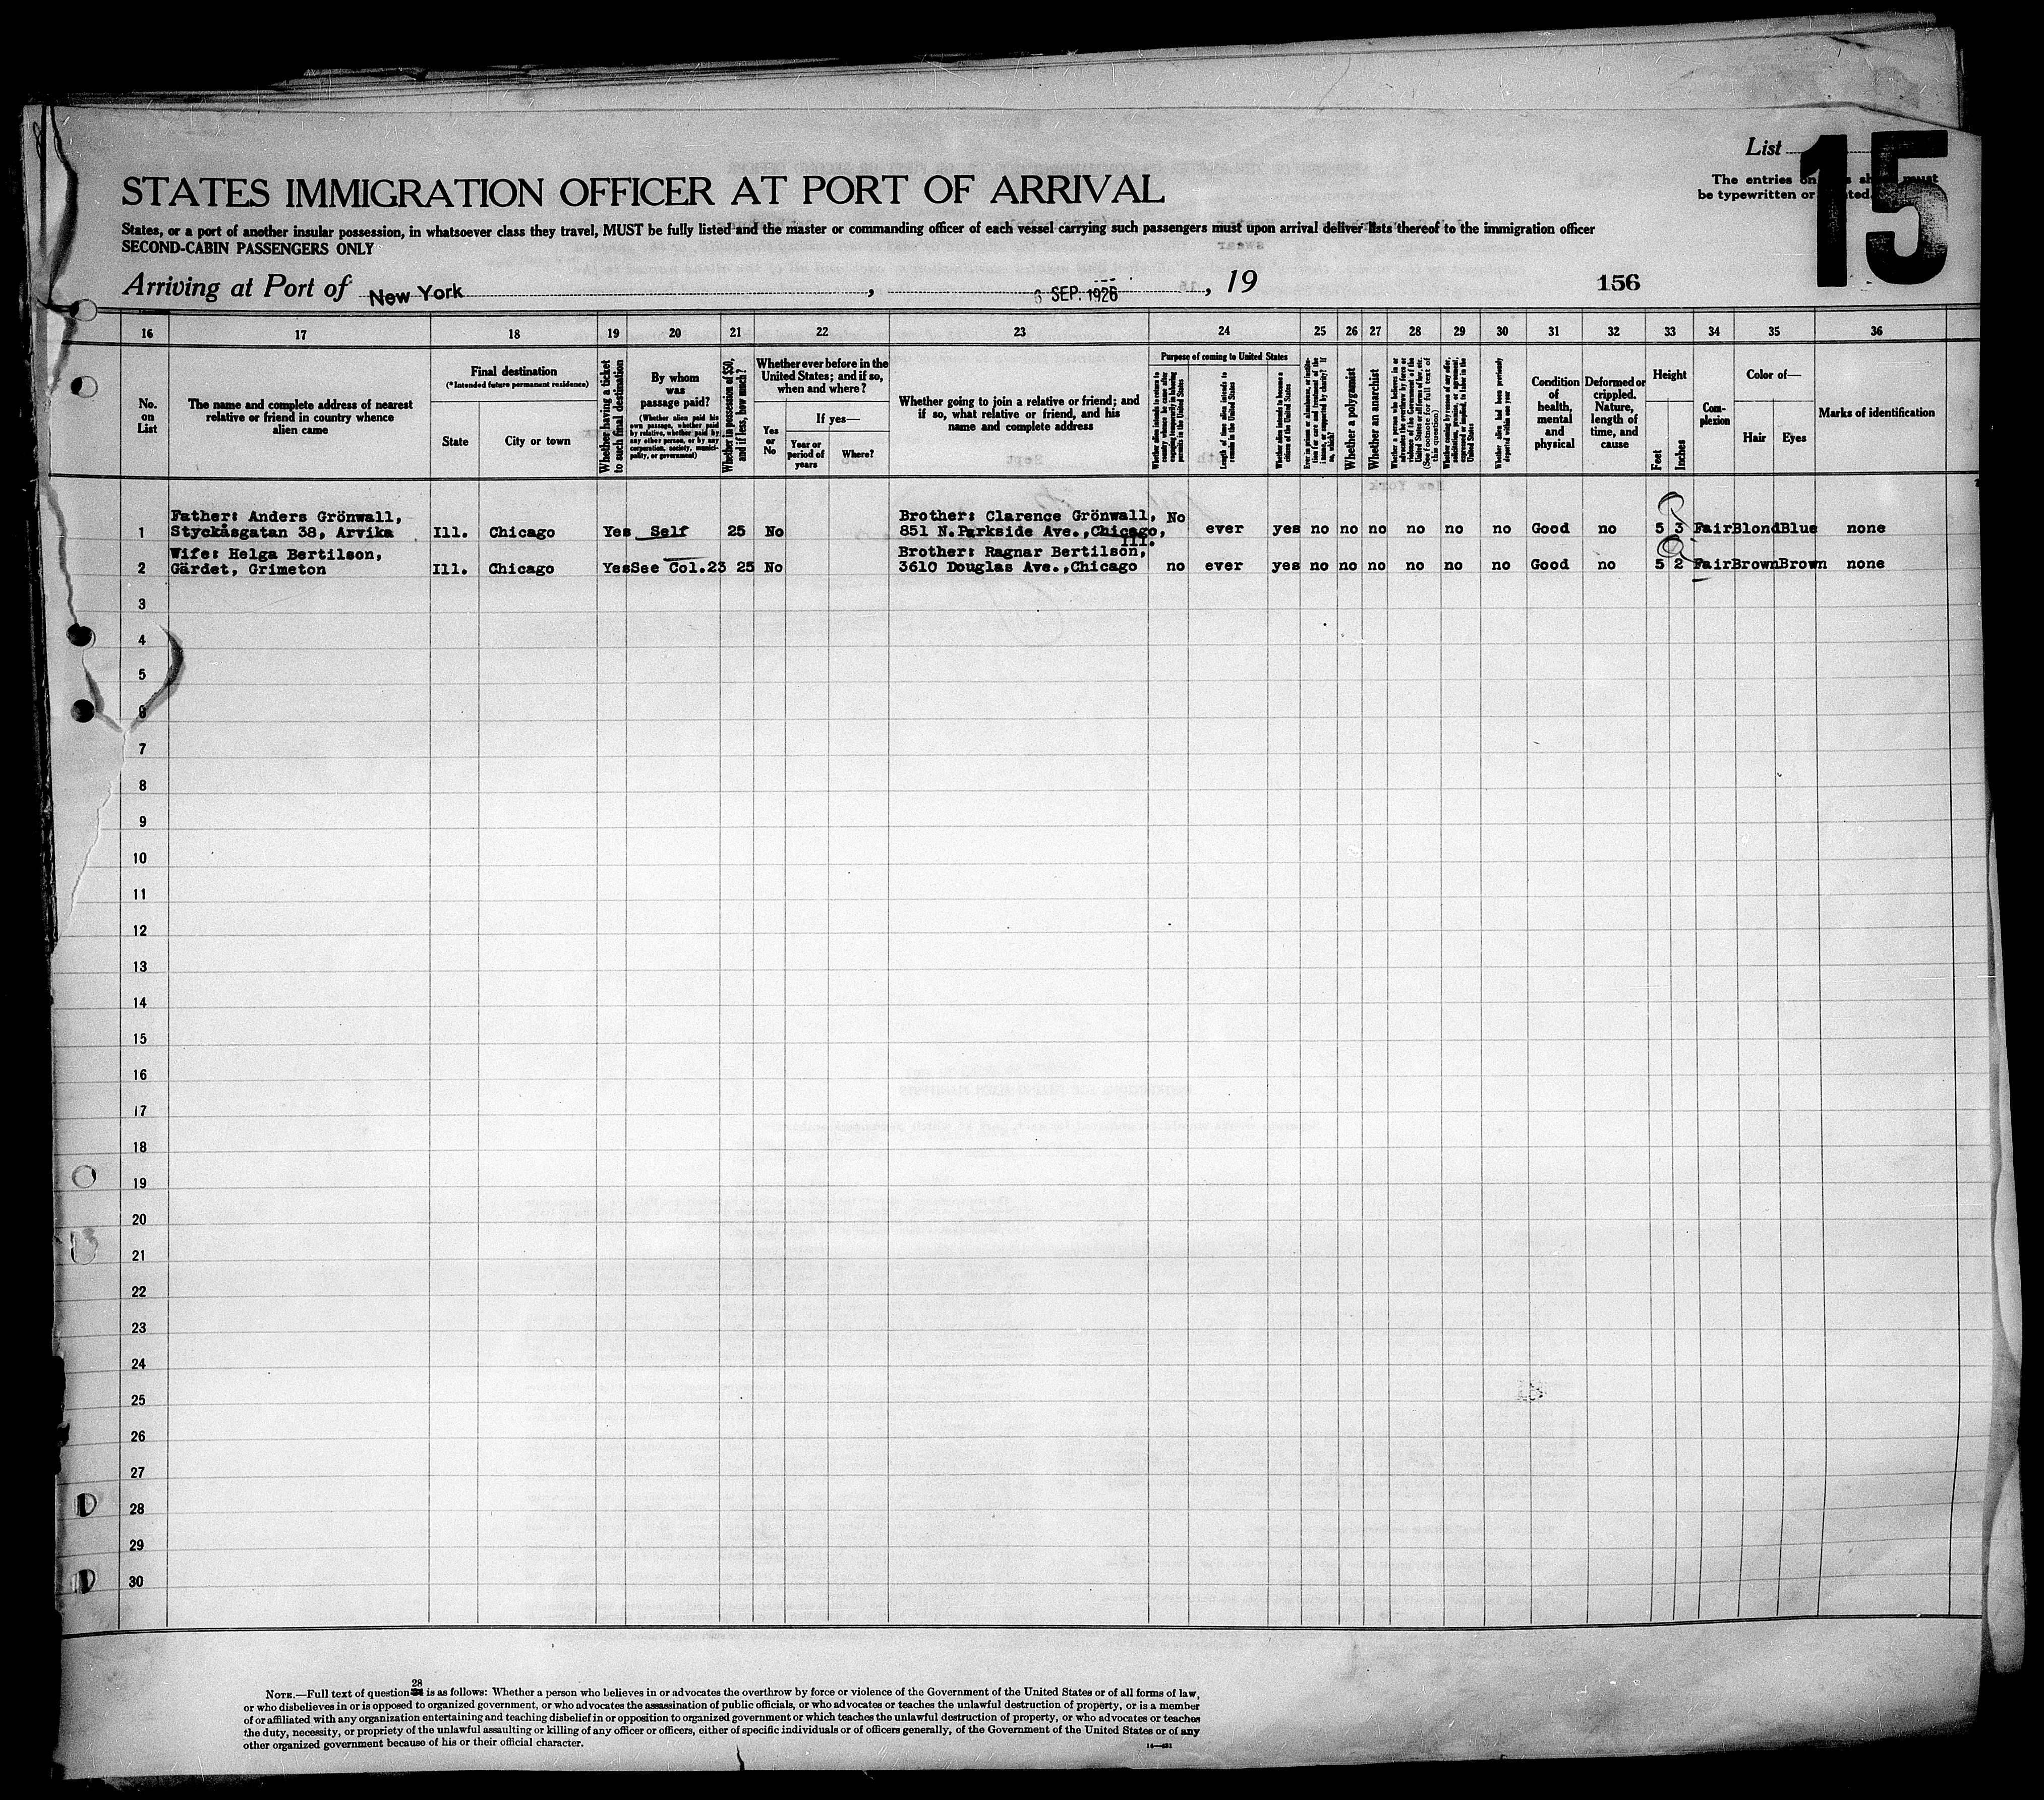 List
15
The entries on must
be typewritten or
STATES IMMIGRATION OFFICER AT PORT OF ARRIVAL
States, or a port of another insular possession, in whatsoever class they travel, MUST be fully listed and the master or commanding officer of each vessel carrying such passengers must upon arrival deliver lists thereof to the immigration officer
SECOND-CABIN PASSENGERS ONLY
Arriving at Port of New York , 6 SEP. 1926 , 19
156
16 17 18 19 20 21 22 23 24 25 26 27 28 29 30 31 32 33 34 35 36
No. on List
The name and complete address of nearest
relative or friend in country whence
alien came
Final destination
(*Intended future permanent residence)
State
City or town
Whether having a ticket
to such final destination
By whom
was
passage paid?
(Whether alien paid his
own passage, whether paid
by relative, whether paid by
any other person, or by any
corporation, society, munici-
pality, or government)
Whether in possession of $50,
and if less, how much?
Whether ever before in the
United States; and if so,
when and where?
Yes
or
No
If yes—
Year or
period of
years
Where?
Whether going to join a relative or friend; and
if so, what relative or friend, and his
name and complete address
Purpose of coming to United States
Length of time alien intends to
remain in the United States
Whether alien intends to become a
citizen of the United States
Whether a polygamist
Whether an anarchist
Whether alien had been previously
deported within one year
Condition
of
health,
mental
and
physical
Deformed or
crippled.
Nature,
length of
time, and
cause
Height
Feet
Inches
Com-
plexion
Color of—
Hair
Eyes
Marks of identification
Father: Anders Grönwall, Brother: Clarence Grönwall, No
1 Styckåsgatan 38, Arvika Ill. Chicago Yes Self 25 No 851 N.Parkside Ave.,Chicago, ever yes no no no no no no Good no 5 3 Fair Blond Blue none
Ill.
Wife: Helga Bertilson, Brother: Ragnar Bertilson,
2 Gärdet, Grimeton Ill. Chicago Yes See Col.23 25 No 3610 Douglas Ave.,Chicago no ever yes no no no no no no Good no 5 2 Fair Brown Brown none
3
4
5
6
7
8
9
10
11
12
13
14
15
16
17
18
19
20
21
22
23
24
25
26
27
28
29
30
28
NOTE.—Full text of question is as follows: Whether a person who believes in or advocates the overthrow by force or violence of the Government of the United States or of all forms of law,
or who disbelieves in or is opposed to organized government, or who advocates the assassination of public officials, or who advocates or teaches the unlawful destruction of property, or is a member
of or affiliated with any organization entertaining and teaching disbelief in or opposition to organized government or which teaches the unlawful destruction of property, or who advocates or teaches
the duty, necessity, or propriety of the unlawful assaulting or killing of any officer or officers, either of specific individuals or of officers generally, of the Government of the United States or of any
other organized government because of his or their official character.